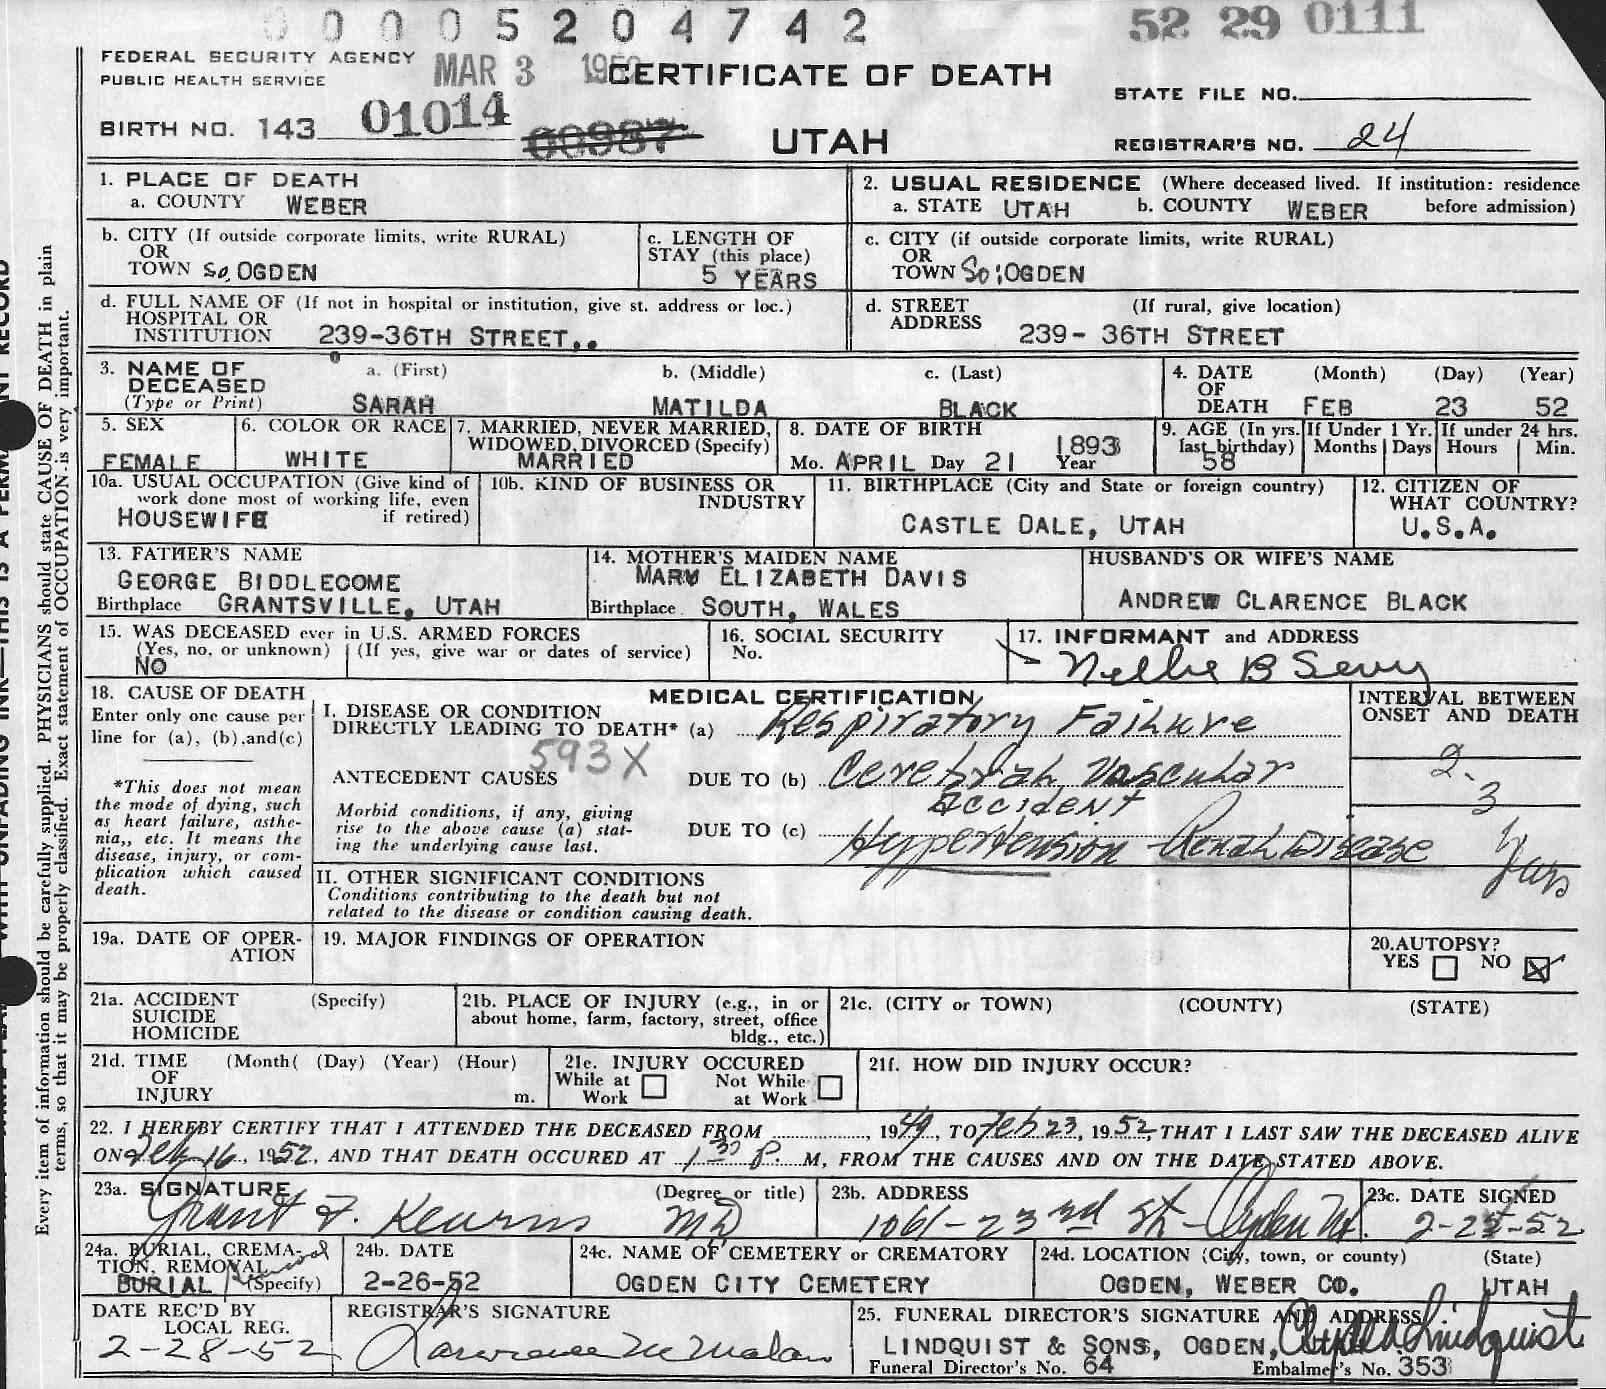 0 0 0 0 5 2 0 4 7 4 2
52 29 0111
FEDERAL SECURITY AGENCY
PUBLIC HEALTH SERVICE
MAR 3 1952
CERTIFICATE OF DEATH
STATE FILE NO.
BIRTH NO. 143 01014 00987
UTAH
REGISTRAR'S NO. 24
1. PLACE OF DEATH
a. COUNTY WEBER
2. USUAL RESIDENCE (Where deceased lived. If institution: residence
a. STATE UTAH b. COUNTY WEBER before admission)
b. CITY (If outside corporate limits, write RURAL)
OR
TOWN So. OGDEN
c. LENGTH OF
STAY (this place)
5 YEARS
c. CITY (if outside corporate limits, write RURAL)
OR
TOWN So. OGDEN
d. FULL NAME OF (If not in hospital or institution, give st. address or loc.)
HOSPITAL OR
INSTITUTION 239-36TH STREET..
d. STREET (If rural, give location)
ADDRESS 239- 36TH STREET
3. NAME OF a. (First) b. (Middle) c. (Last)
DECEASED
(Type or Print) SARAH MATILDA BLACK
4. DATE (Month) (Day) (Year)
OF
DEATH FEB 23 52
5. SEX
FEMALE
6. COLOR OR RACE
WHITE
7. MARRIED, NEVER MARRIED,
WIDOWED, DIVORCED (Specify)
MARRIED
8. DATE OF BIRTH
Mo. APRIL Day 21 1893 Year
9. AGE (In yrs. last birthday) 58
If Under 1 Yr. Months Days
If under 24 hrs. Hours Min.
10a. USUAL OCCUPATION (Give kind of
work done most of working life, even
HOUSEWIFE if retired)
10b. KIND OF BUSINESS OR
INDUSTRY
11. BIRTHPLACE (City and State or foreign country)
CASTLE DALE, UTAH
12. CITIZEN OF
WHAT COUNTRY?
U.S.A.
13. FATHER'S NAME
GEORGE BIDDLECOME
Birthplace GRANTSVILLE, UTAH
14. MOTHER'S MAIDEN NAME
MARY ELIZABETH DAVIS
Birthplace SOUTH, WALES
HUSBAND'S OR WIFE'S NAME
ANDREW CLARENCE BLACK
15. WAS DECEASED ever in U.S. ARMED FORCES
(Yes, no, or unknown) (If yes, give war or dates of service)
NO
16. SOCIAL SECURITY
No.
17. INFORMANT and ADDRESS
Nellie B Sevy
18. CAUSE OF DEATH
Enter only one cause per
line for (a), (b), and (c)
*This does not mean
the mode of dying, such
as heart failure, asthe-
nia,, etc. It means the
disease, injury, or com-
plication which caused
death.
MEDICAL CERTIFICATION
I. DISEASE OR CONDITION
DIRECTLY LEADING TO DEATH* (a) Respiratory Failure
593X
ANTECEDENT CAUSES DUE TO (b) Cerebral Vascular
Accident
Morbid conditions, if any, giving
rise to the above cause (a) stat-
ing the underlying cause last.
DUE TO (c) Hypertension - Renal Disease
INTERVAL BETWEEN
ONSET AND DEATH
2-
3
Years
II. OTHER SIGNIFICANT CONDITIONS
Conditions contributing to the death but not
related to the disease or condition causing death.
19a. DATE OF OPER-
ATION
19. MAJOR FINDINGS OF OPERATION
20. AUTOPSY?
YES NO
21a. ACCIDENT (Specify)
SUICIDE
HOMICIDE
21b. PLACE OF INJURY (e.g., in or
about home, farm, factory, street, office
bldg., etc.)
21c. (CITY or TOWN) (COUNTY) (STATE)
21d. TIME (Month( (Day) (Year) (Hour)
OF
INJURY m.
21e. INJURY OCCURED
While at Work Not While at Work
21f. HOW DID INJURY OCCUR?
22. I HEREBY CERTIFY THAT I ATTENDED THE DECEASED FROM , 1949, TO Feb 23, 1952, THAT I LAST SAW THE DECEASED ALIVE
ON Feb 16, 1952, AND THAT DEATH OCCURED AT 1 30 P. M, FROM THE CAUSES AND ON THE DATE STATED ABOVE.
23a. SIGNATURE (Degree or title)
Grant F. Kearns MD
23b. ADDRESS
1061-23rd St - Ogden Ut.
23c. DATE SIGNED
2-25-52
24a. BURIAL, CREMA-
TION, REMOVAL
BURIAL Removal (Specify)
24b. DATE
2-26-52
24c. NAME OF CEMETERY or CREMATORY
OGDEN CITY CEMETERY
24d. LOCATION (City, town, or county) (State)
OGDEN, WEBER CO. UTAH
DATE REC'D BY
LOCAL REG.
2-28-52
REGISTRAR'S SIGNATURE
Lawrence M Malan
25. FUNERAL DIRECTOR'S SIGNATURE AND ADDRESS
LINDQUIST & SONS, OGDEN, Clyde Lindquist
Funeral Director's No. 64 Embalmer's No. 353
Every item of information should be carefully supplied. PHYSICIANS should state CAUSE OF DEATH in plain
terms, so that it may be properly classified. Exact statement of OCCUPATION is very important.
WITH UNFADING INK—THIS IS A PERMANENT RECORD